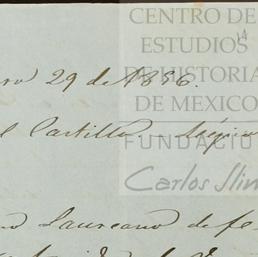 CENTRO DE
ESTUDIOS
DE HISTORIA
DE MEXICO
FUNDACIÓ
Carlos Slim
14
ro 29 de 1856.
l Castillo. Méjico
no Laureano de fe-